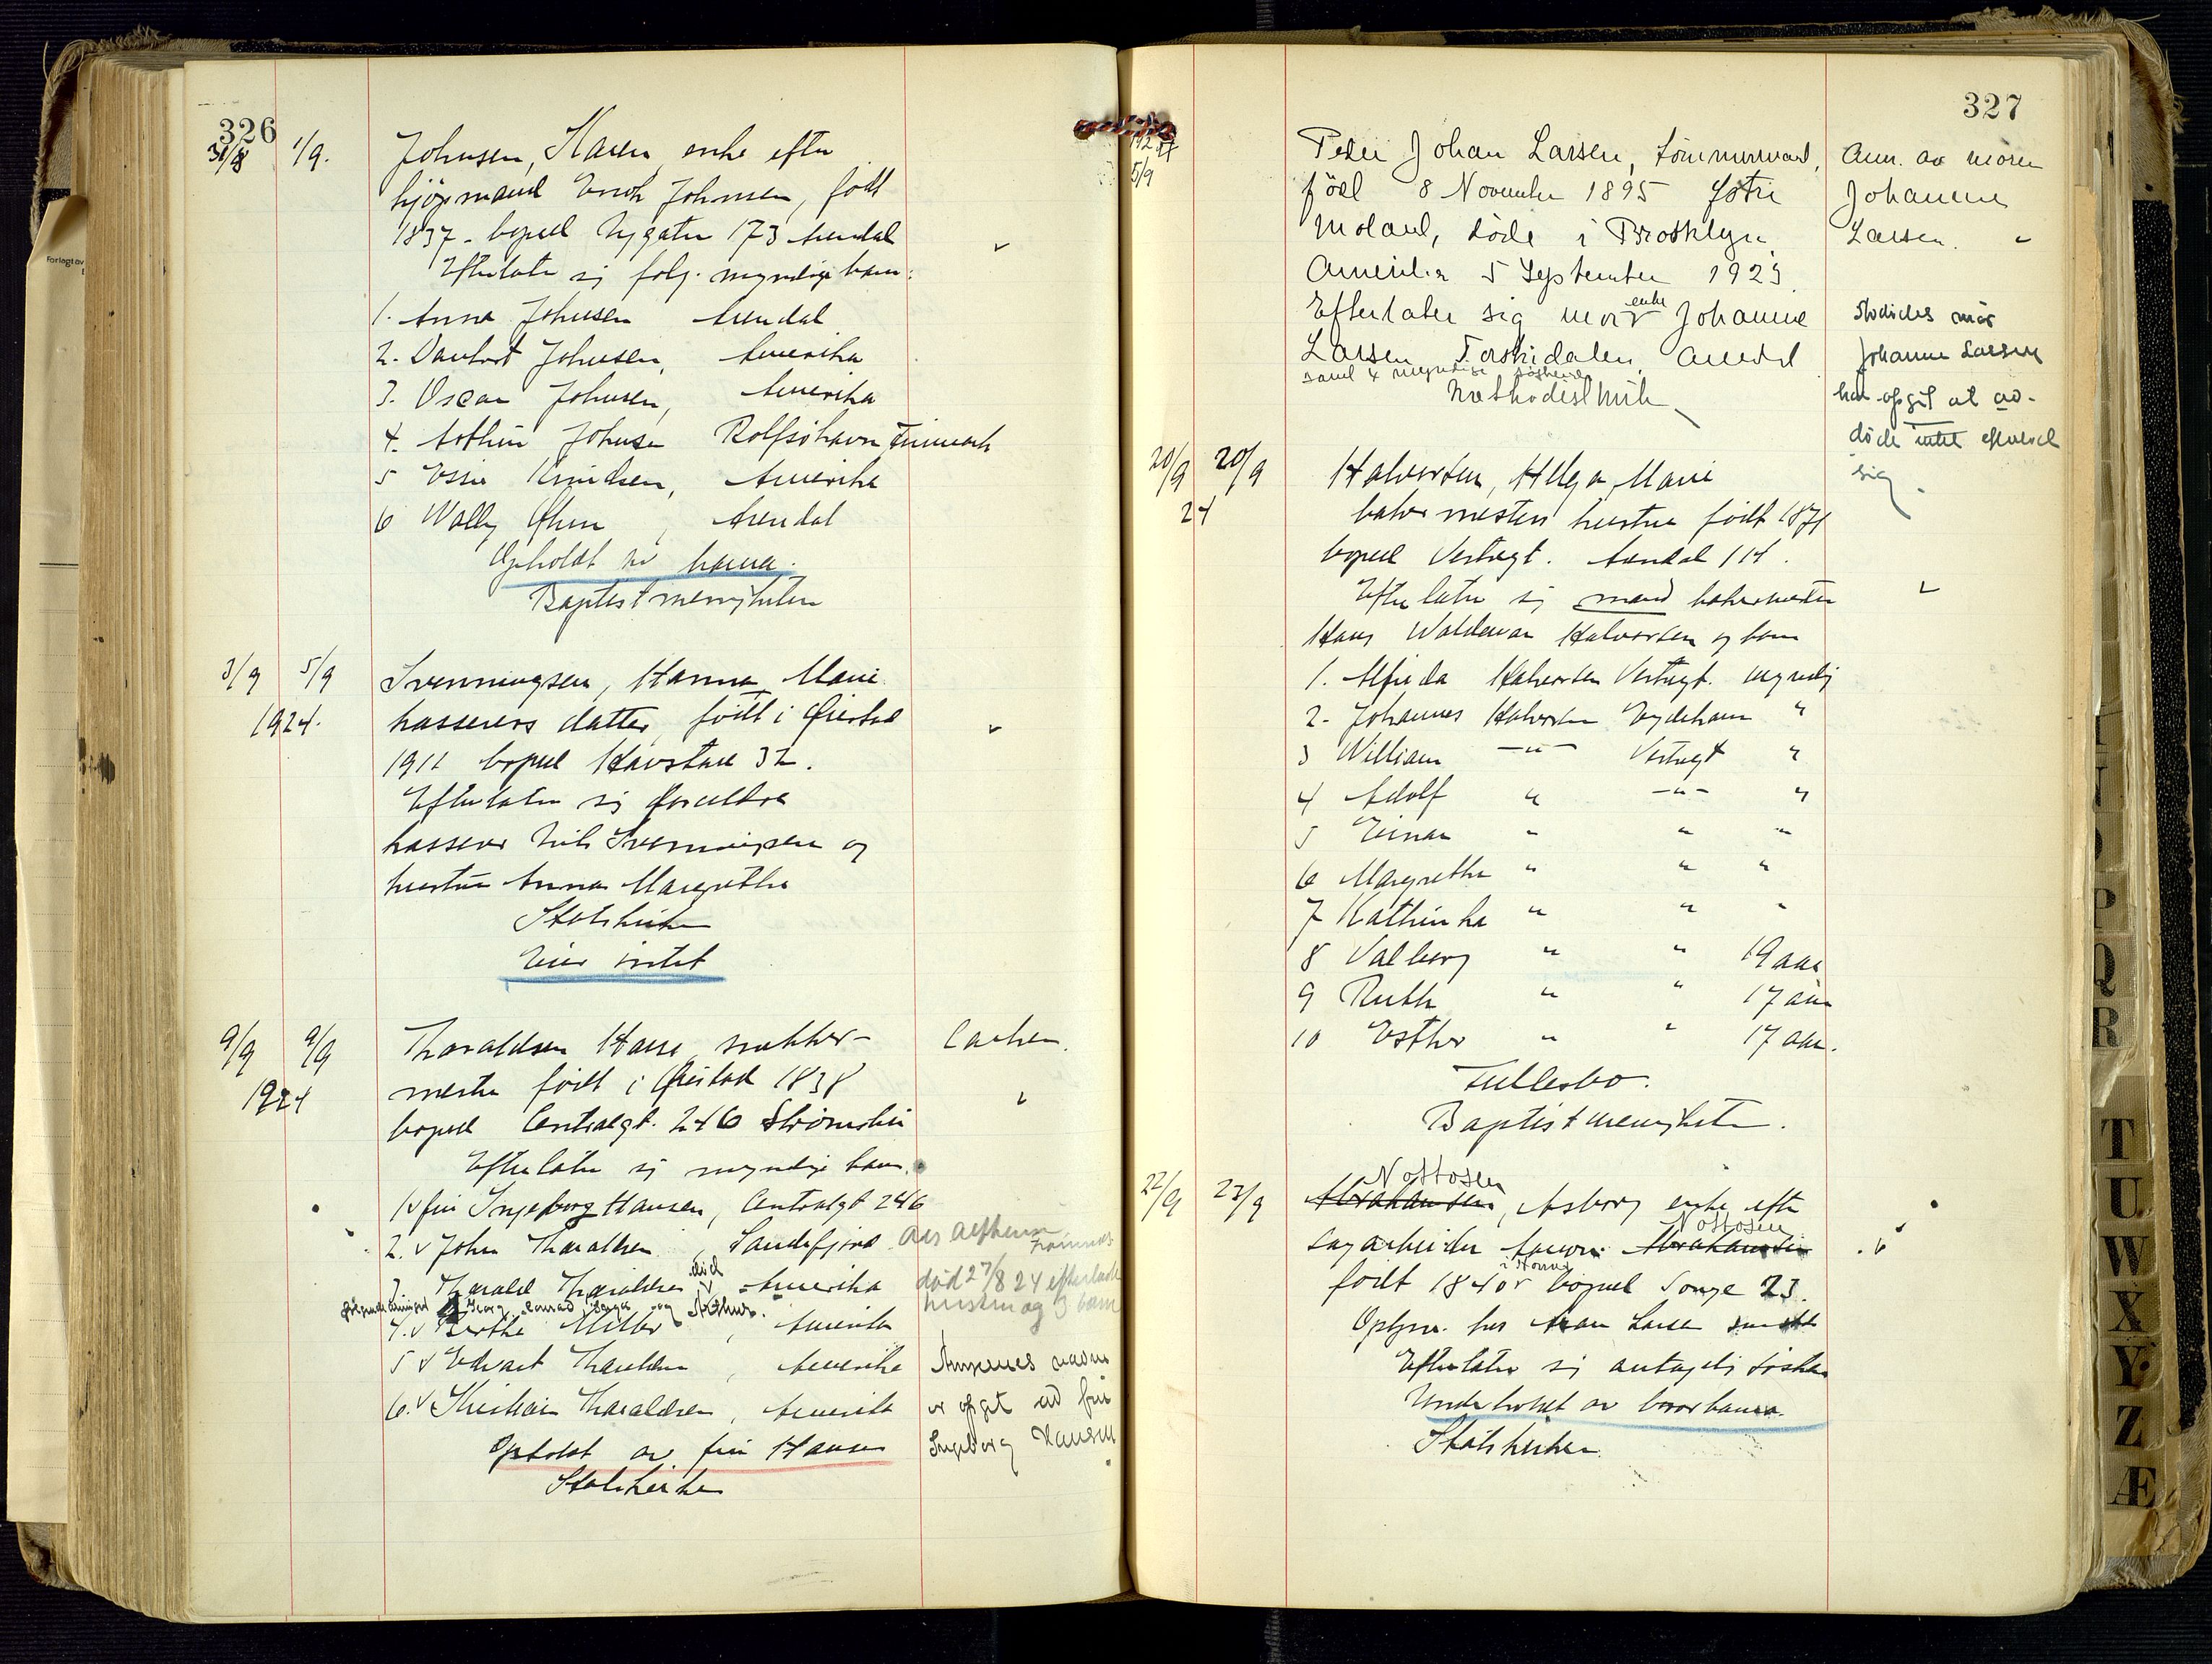 326
31/8 1/9. Johnsen, Karen enke efter
kjøpmand Enok Johnsen, født
1837. bopæl Nygaten 173 Arendal
Efterlater sig følg. myndige barn:
1. Anna Johnsen Arendal
2. Johnsen, Amerika
3. Oscar Johnsen, Amerika
4. Johnsen Rolfsøhavn Finmark
5 Knudsen, Amerika
6 Wally , Arendal
Opholdt av barna.
Baptistmenigheten
3/9 5/9 Svenningsen, Hanna Marie
1924. kasserers datter, født i Øiestad
1911 bopæl Havstad 32.
Efterlater sig forældre
kasserer Nils Svenningsen og
hustru Anna Margrethe
Statskirken
Eier intet
9/9 9/9 Tharaldsen Hans snekker-
1924 mester født i Øiestad 1838
bopæl Centralgt. 246 Strømsbu
Efterlater sig myndige barn.
1 v fru Ingeborg Hansen, Centralgt 246
2. v John Tharaldsen, Sandefjord
3. Tharald Tharaldsen død v Amerika
død 27/8 24 efterlader
hustru og 3 barn
Georg, Conrad og Arthur.
4. v Berthe , Amerika
5 v Edvart Tharaldsen, Amerika
6. v Kristian Tharaldsen, Amerika
Arvingenes navne
er opgit ved fru
Ingeborg Hansen
Opholdt av fru Hansen
Statskirken
327
5/9
Peder Johan Larsen, tømmermand,
født 8 November 1895 Østre
Moland, døde i Brooklyn
Amerika 5 September 1923.
Efterlater sig mor enke Johanne
Larsen, Torskedalen, Arendal
samt 4 myndige søskende
Methodistkirke
Anm. av moren
Johanne
Larsen.
Avdødes mor
Johanne Larsen
har opgit at av-
døde intet efterlod
sig.
20/9 20/9 Halvorsen, Helga Marie
24 bakermesters hustru født 1871
bopæl Vestregt. Arendal 114.
Efterlater sig mand bakermester
Hans Waldemar Halvorsen og barn
1. Alfrida Halvorsen Vestregt. myndig
2. Johannes Halvorsen Eydehavn "
3 William —"— Vestregt "
4 Adolf " —"— "
5 Einar " " "
6 Margrethe " " "
7 Kathinka " " "
8 Valborg " " 19 aar
9 Ruth " " 17 aar
10 Esther " " 17 aar.
Fællesbo.
Baptistmenigheten.
22/9 23/9 Nottosen
Abrahamsen, Asborg enke efter
Nottosen
sagarbeider Abrahamsen
født 1840 bopæl Songe 23.
Larsen
Efterlater sig antagelig søsken
Underholdt av barnebarna.
Statskirken.
T
U
W
X
Y
Z
Æ